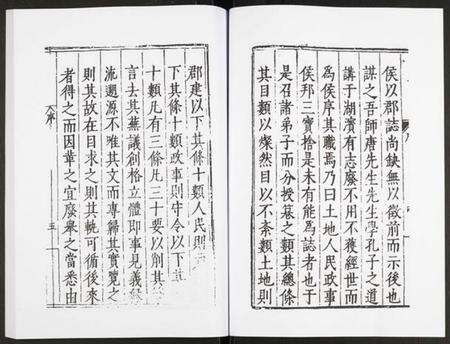 侯以郡誌尚缺無以徵前而示後也
謀之吾師唐先生先生學孔子之道
講于湖濱有志廢不用不獲經世而
爲侯序其職焉乃曰土地人民政事
侯邦三寶捨是未有能爲誌者也于
是召諸弟子而分授某之類其總條
其目類以燦然目以不紊類土地則
郡建以下其條十類人民則
下其條十類政事則守令以下其
十類凡有三條凡三十要以削其
言去其蕪議創格立體即事見義
流遡源不唯其文而專歸其實覽之
則其故在目求之則其軌可循後來
者得之而因革之宜廢舉之當悉由
序
五